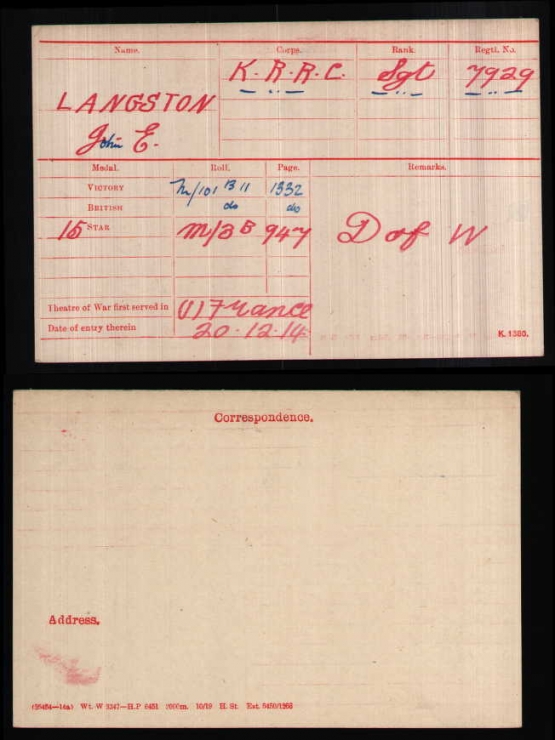 Name. Corps. Rank. Regtl. No.
K.R.R.C. Sgt 7929
LANGSTON
John E.
Medal. Roll. Page. Remarks.
VICTORY M/101 B 11 1332
BRITISH do do
15 STAR M/3 B 947 D of W
Theatre of War first served in (1) France
Date of entry therein 20.12.14
K. 1380.
Correspondence.
Address.
Wt. W 5347—H.P 2000m. 10/19 H. St.